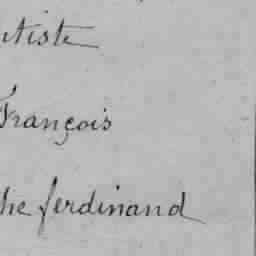 tiste
François
he ferdinand